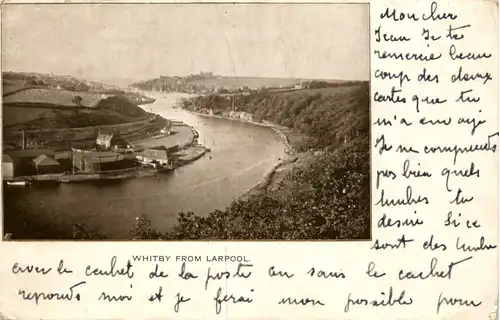 Mon cher
Jean Je te
remercie beau
coup des deux
cartes que tu
m'a envoyé
Je ne comprends
pas bien quels
timbres tu
desire Si ce
sont des timbre
WHITBY FROM LARPOOL.
avec le cachet de la poste ou sans le cachet
reponds moi et je ferai mon possible pour